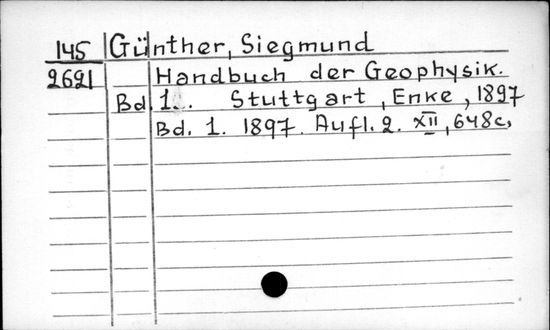 145 Günther, Siegmund
2621 Handbuch der Geophysik.
Bd. 1... Stuttgart, Enke, 1897
Bd. 1. 1897. Aufl. 2. XII, 648c,